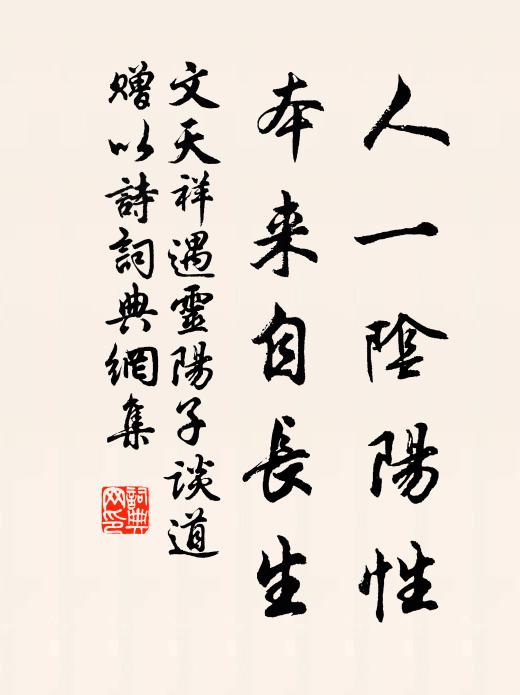 人一陰陽性
本来自長生
文天祥遇靈陽子談道
贈以詩詞典網集
詞典网印